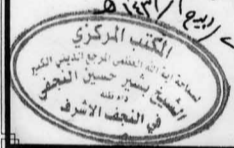 /رجب/١٤٣١هـ
المكتب المركزي
لسماحة آية الله العظمى المرجع الديني الكبير
الشيخ بشير حسين النجفي
دام ظله
في النجف الاشرف